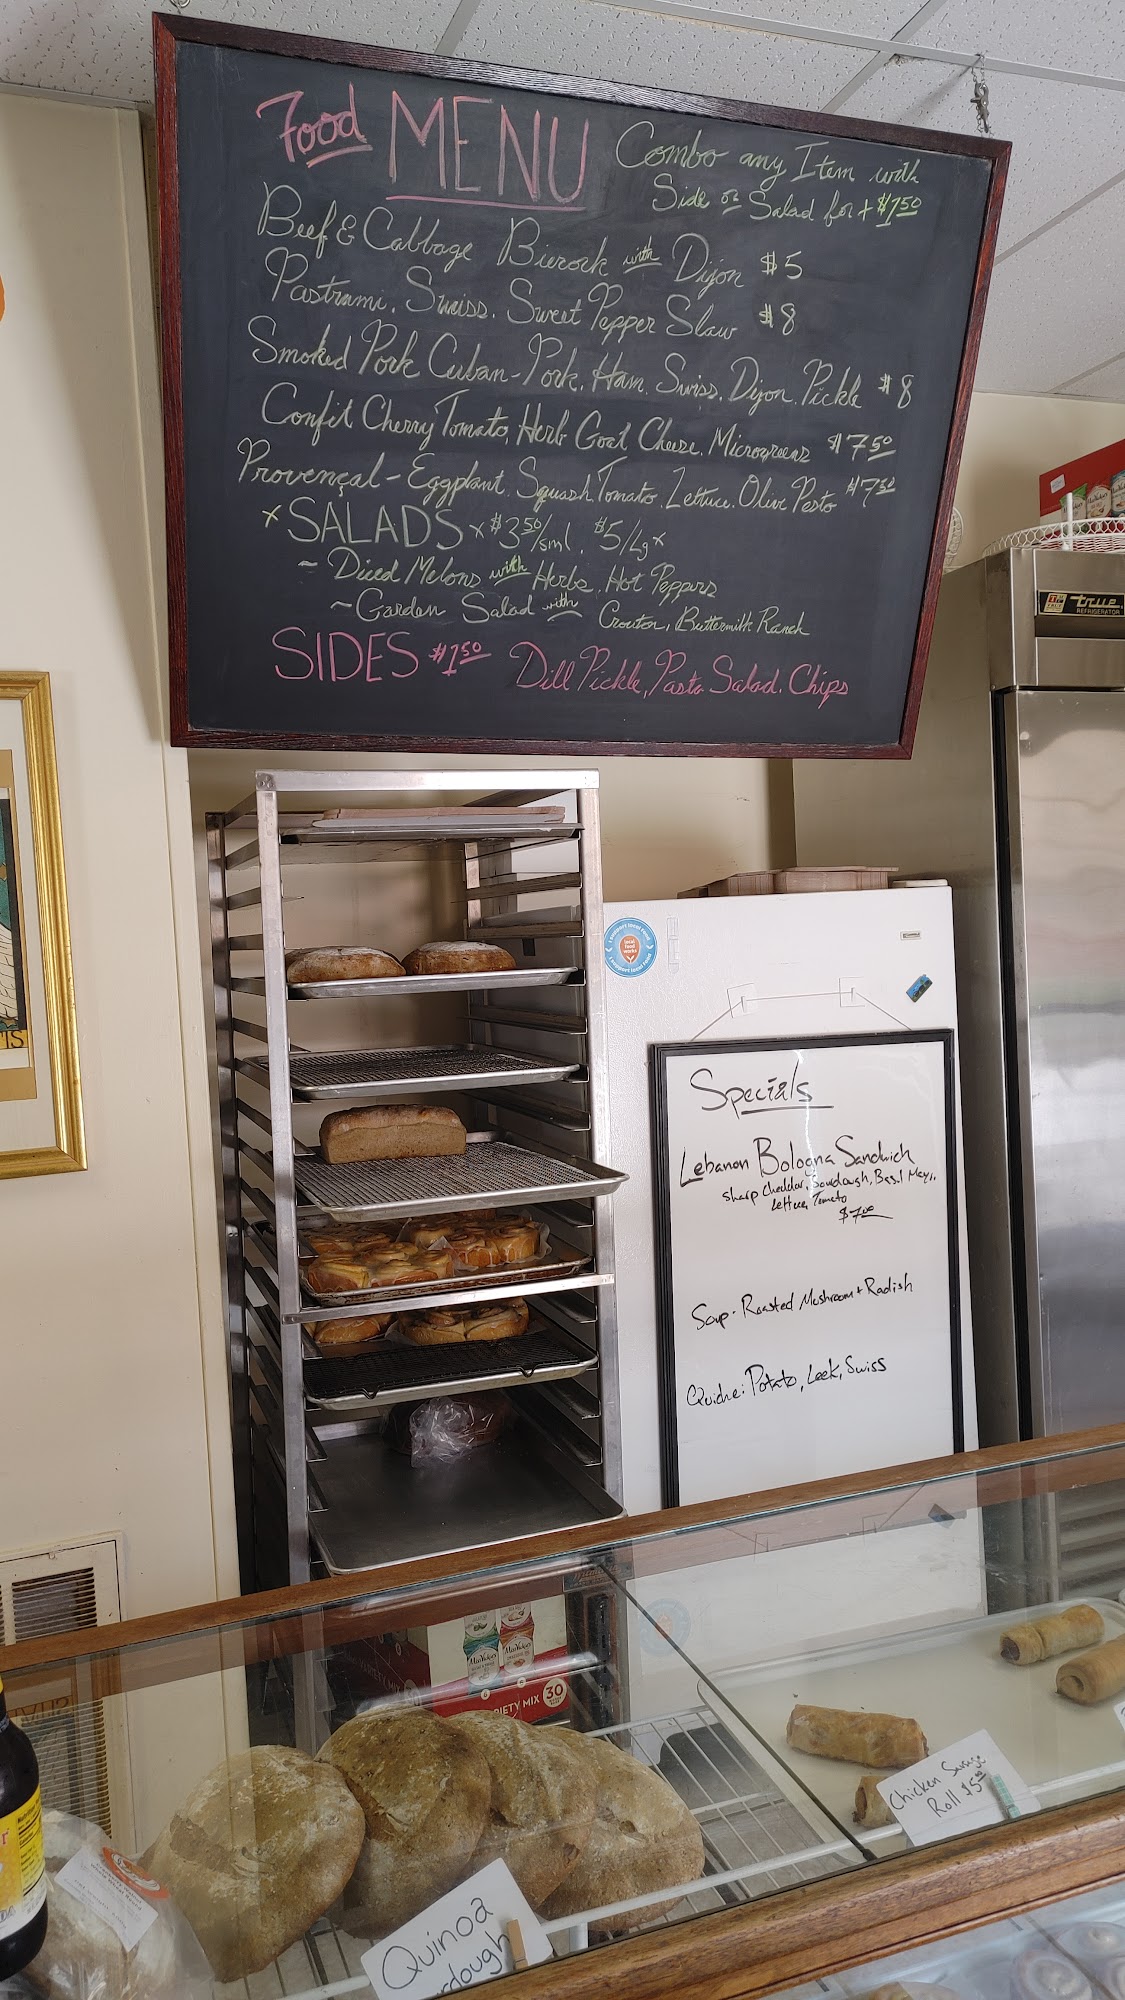 Food MENU
Combo any Item with
Side or Salad for + $1.50
Beef & Cabbage Bierock with Dijon $5
Pastrami, Swiss, Sweet Pepper Slaw $8
Smoked Pork Cuban - Pork, Ham, Swiss, Dijon, Pickle $8
Confit Cherry Tomato, Herb Goat Cheese, Microgreens $7.50
Provençal - Eggplant, Squash, Tomato, Lettuce, Olive Pesto $7.50
x SALADS x $3.50/sml, $5/Lg x
- Diced Melons with Herbs, Hot Peppers
~ Garden Salad with Crouton, Buttermilk Ranch
SIDES $1.50 Dill Pickle, Pasta Salad, Chips
true
REFRIGERATOR
I support local food
local food works
I support local food
Specials
Lebanon Bologna Sandwich
Sharp Cheddar, Sourdough, Basil Mayo,
Lettuce, Tomato
$7.00
Soup - Roasted Mushroom + Radish
Quiche: Potato, Leek, Swiss
VARIETY MIX
IETY MIX 30
Chicken Sausage
Roll $5.00
Quinoa
rdough